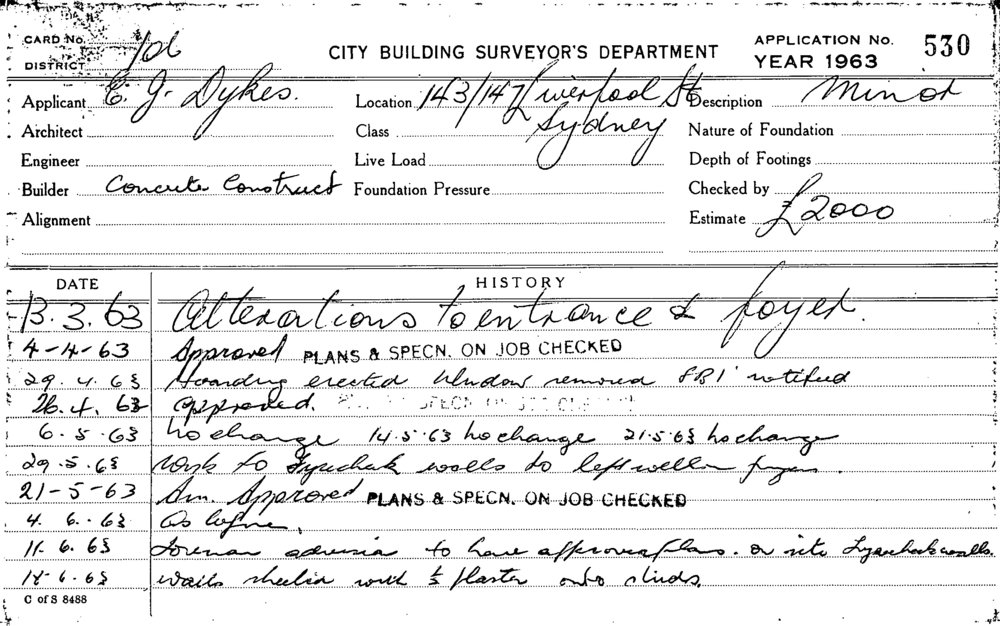 CARD No. 
CITY BUILDING SURVEYOR'S DEPARTMENT
APPLICATION No. 530
DISTRICT
YEAR 1963
Applicant E. J. Dykes. Location 143/147 Liverpool St Description Minor
Architect Class Sydney Nature of Foundation
Engineer Live Load Depth of Footings
Builder Concrete Construct Foundation Pressure Checked by
Alignment Estimate £2000
DATE HISTORY
13.3.63 Alterations to entrance & foyer.
4-4-63 Approved PLANS & SPECN. ON JOB CHECKED
29.4.63 Hoarding erected Window removed notified
26.4.63 approved.
6.5.63 No change 14.5.63 No change 21.5.63 No change
29.5.63 walls to left
21-5-63 Am. Approved PLANS & SPECN. ON JOB CHECKED
4.6.63 As before.
11.6.63 Foreman to have approved plans. on site
18.6.63 walls with ½ plaster onto studs.
C of S 8488